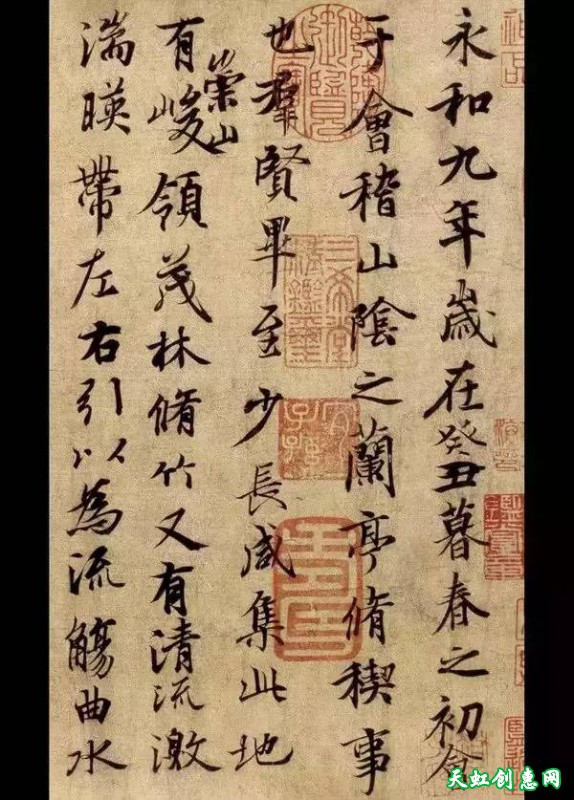 永和九年歲在癸丑暮春之初會
于會稽山陰之蘭亭脩稧事
也羣賢畢至少長咸集此地
有崇山峻領茂林脩竹又有清流激
湍暎帶左右引以為流觴曲水
天虹创惠网